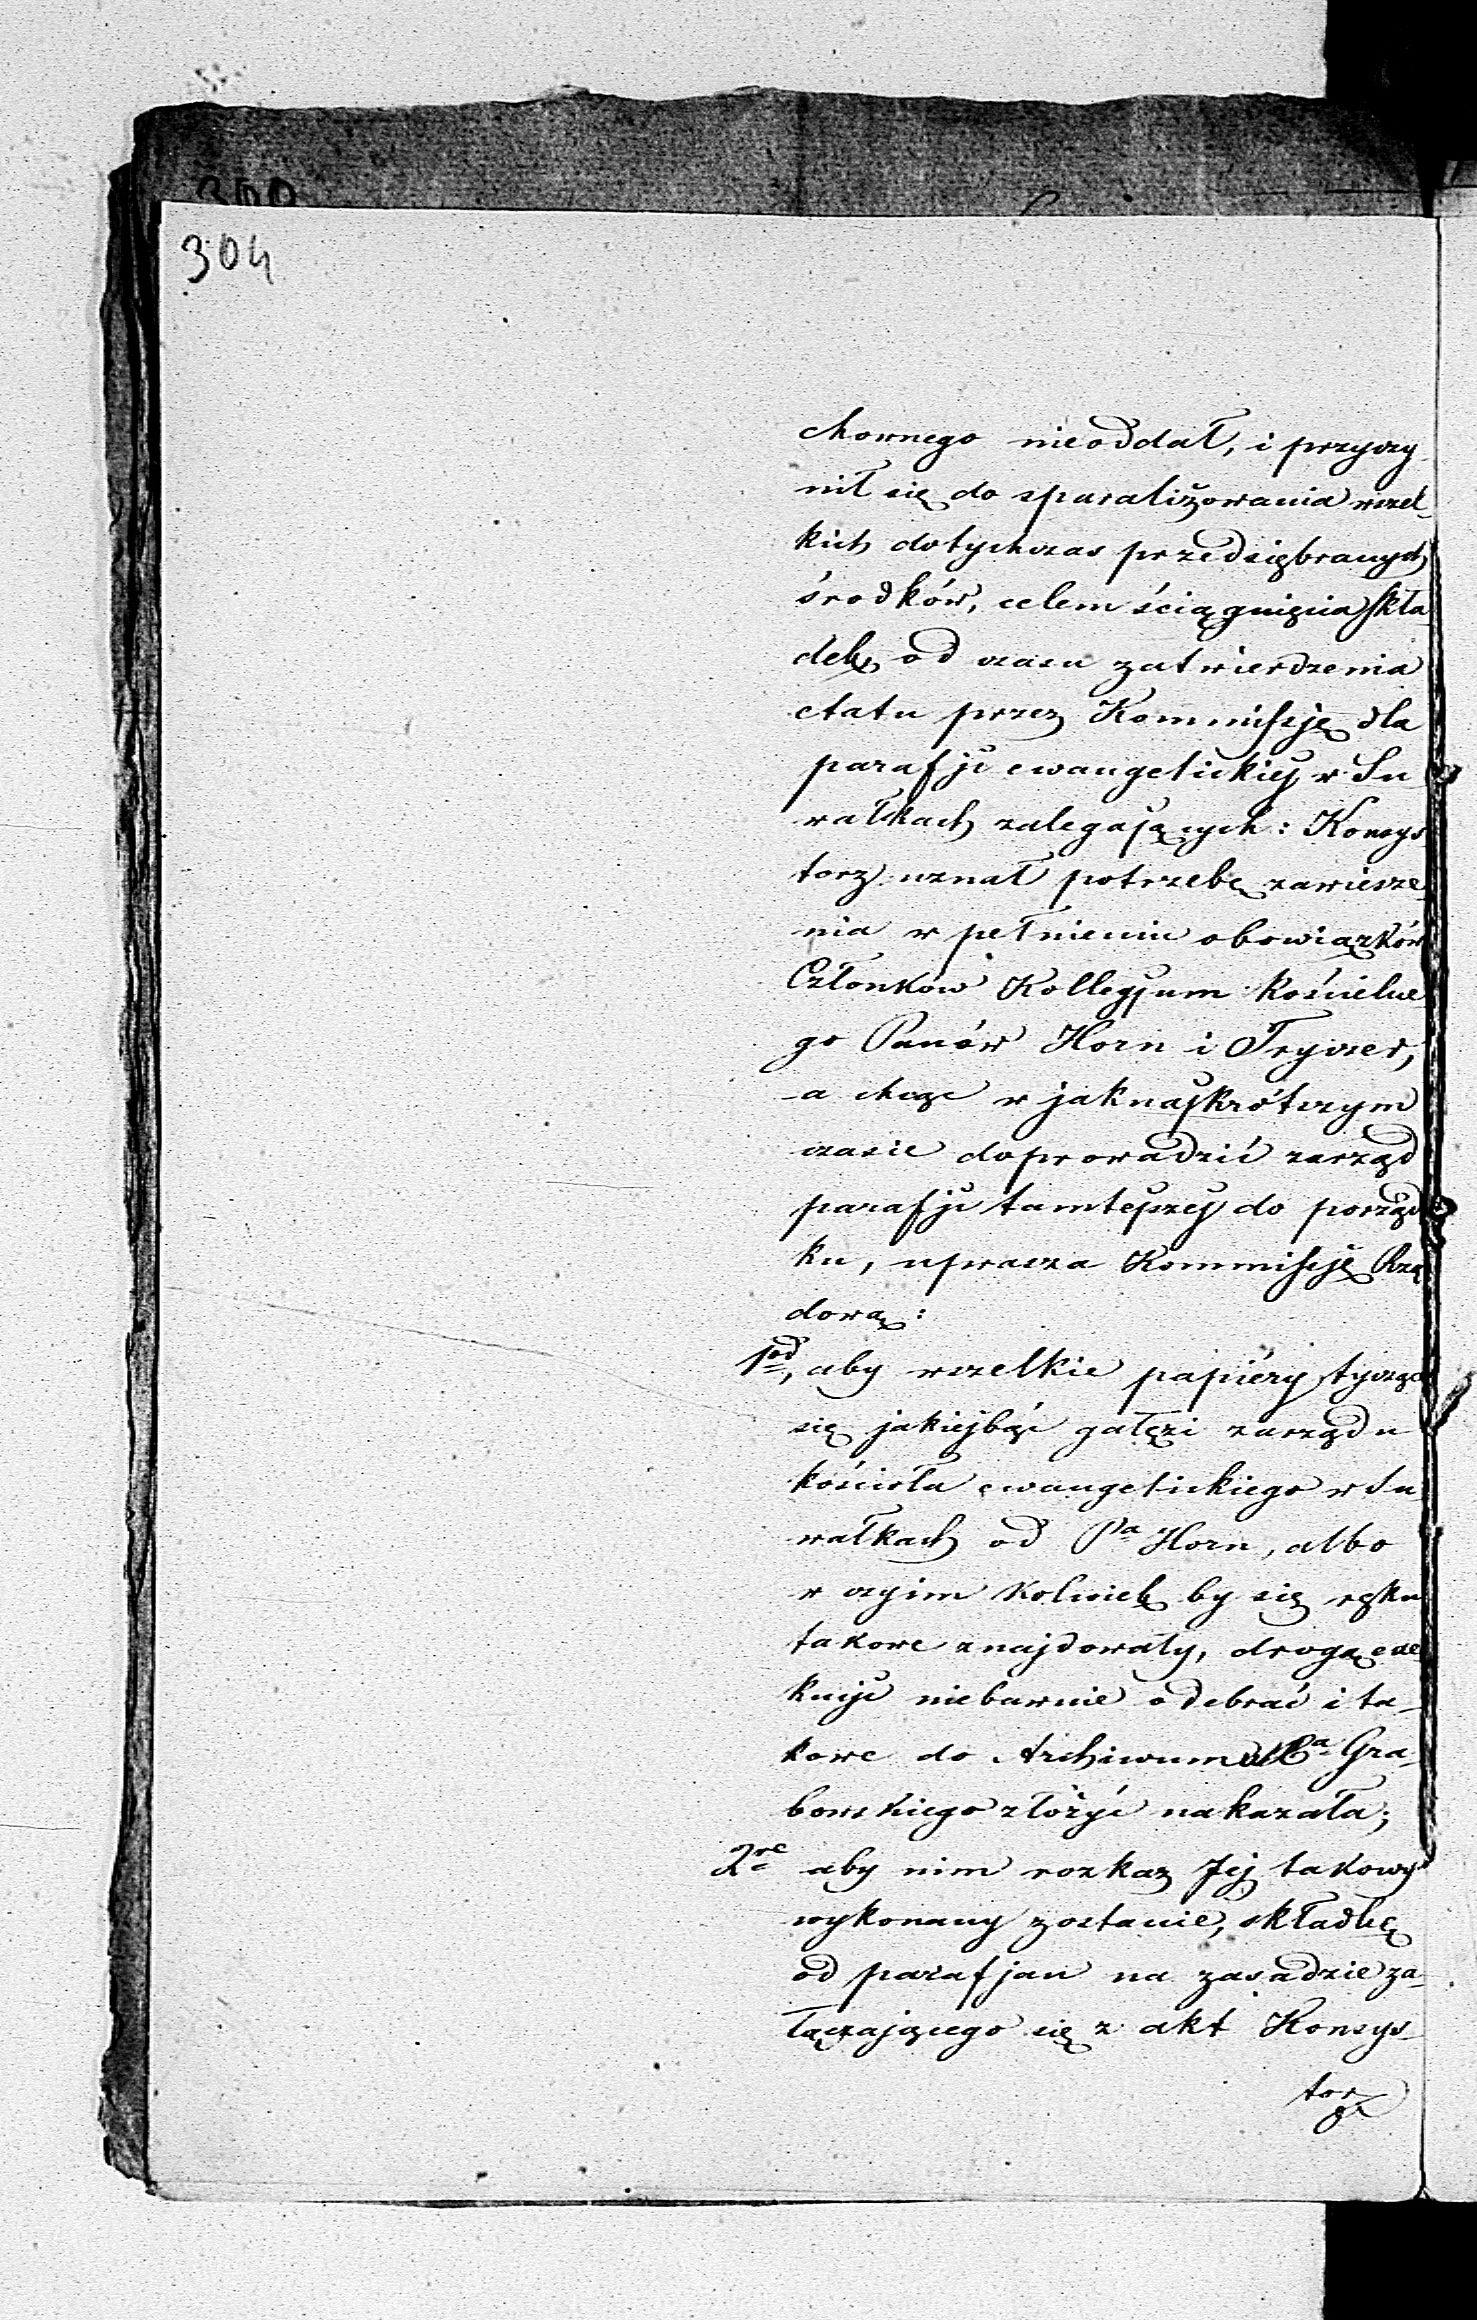 304
chownego nieoddał, i przyczy
nił się do sparaliżowania wszel-
kich dotychczas przedsiębranych
środków, celem ściągnięcia skła-
dek, od czasu zatwierdzenia
etatu przez Kommissję dla
parafji ewangelickiej w Su
wałkach zalegających: Konsys
torz uznał potrzebę zawiesze
nia w pełnieniu obowiązków
Członków Kollegjum kościelne
go Panów Horn i
a chcąc w jaknajkrótszym
czasie doprowadzić zarząd
parafji tamtejszej do porząd
ku, uprasza Kommissję Rzą
dową:
1od, aby wszelkie papiéry tyczące
się jakiejbąć gałęzi zarządu
kościoła ewangelickiego w Su
wałkach od Pa Horn, albo
w czyim kolwiek by się ręku
takowe znajdowały, drogą exe
kucji niebawnie odebrać i ta-
kowe do Archiwum Gra-
bowskiego złożyć nakazała;
2re aby nim rozkaz Jej takowy
wykonany zostanie, składkę
od parafjan na zasadzie za-
łączającego się z akt Konsys-
torza